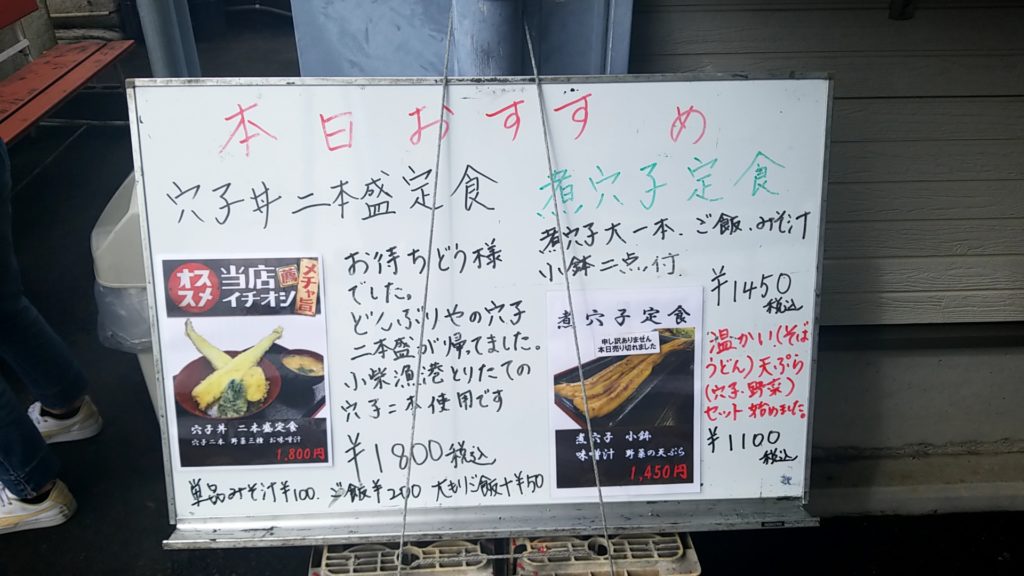 本日おすすめ
穴子丼二本盛定食
お待ちどう様
でした。
どんぶりやの穴子
二本盛が帰ってました。
小柴漁港とりたての
穴子二本使用です
¥1800税込
オススメ
当店
イチオシ
メチャ旨
穴子丼 二本盛定食
穴子二本 野菜三種 お味噌汁
1,800円
単品みそ汁¥100. ご飯¥200 大もりご飯+¥50
煮穴子定食
煮穴子大一本、ご飯、みそ汁
小鉢二点付
¥1450
税込
煮穴子定食
申し訳ありません
本日売り切れました
煮穴子 小鉢
味噌汁 野菜の天ぷら
1,450円
温かい(そば
うどん)天ぷら
(穴子・野菜)
セット始めました。
¥1100
税込